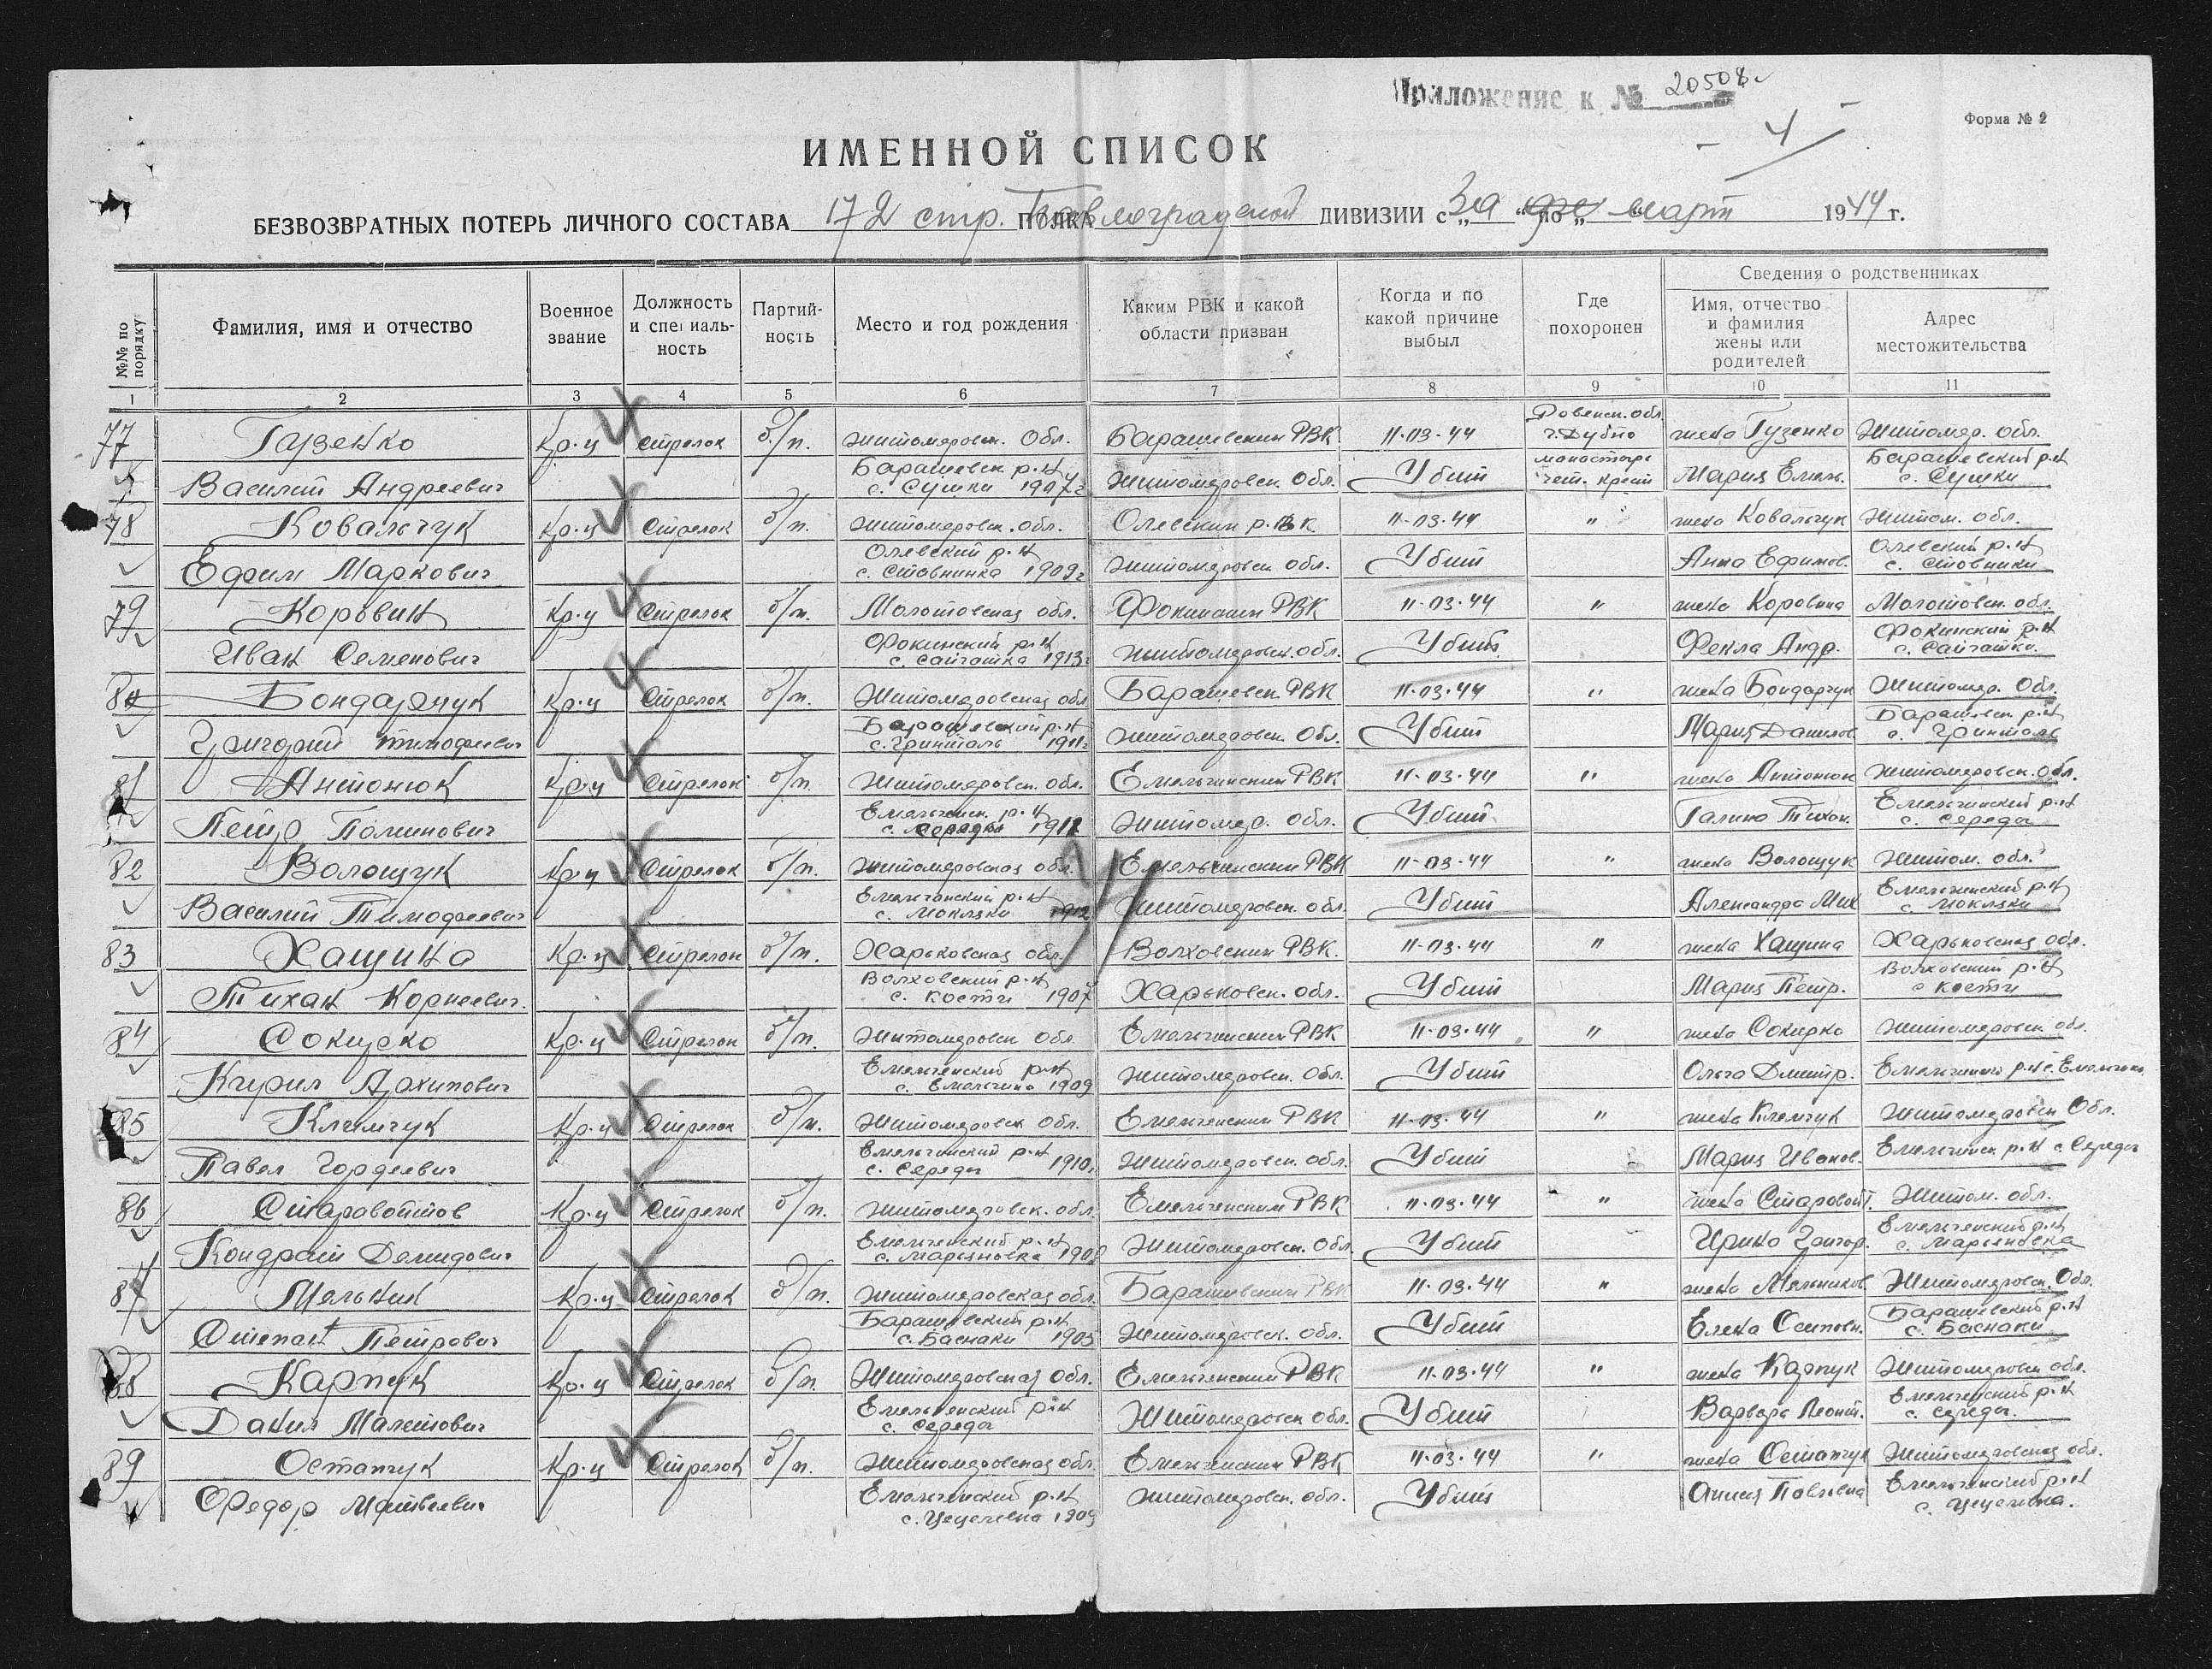 Приложение к № 20508
4
Форма № 2
ИМЕННОЙ СПИСОК
БЕЗВОЗВРАТНЫХ ПОТЕРЬ ЛИЧНОГО СОСТАВА 172 стр. ПОЛКА Павлоградской ДИВИЗИИ с „ за “ по „ март 1944 г.
№№ по порядку
Фамилия, имя и отчество
Военное звание
Должность и специальность
Партийность
Место и год рождения
Каким РВК и какой области призван
Когда и по какой причине выбыл
Где похоронен
Сведения о родственниках
Имя, отчество и фамилия жены или родителей
Адрес местожительства
1 2 3 4 5 6 7 8 9 10 11
77 Гузенко Кр-ц стрелок б/п. Житомировск. Обл. Барашевским РВК 11-03-44 Ровенск. обл. г. Дубно жена Гузенко Житомир. обл.
Василий Андреевич Барашевск р-н с. Сушки 1907г Житомировск. Обл. Убит монастырь Мария Емел. Барашевский р-н с. Сушки
78 Ковальчук Кр-ц Стрелок б/п. Житомировск. обл. Олевским РВК 11-03-44 " жена Ковальчук Житом. обл.
Ефим Маркович Олевский р-н 1909г Житомировск обл. Убит Анна Ефимов. Олевский р-н
79 Коровин Кр-ц Стрелок б/п. Молотовская обл. Фокинским РВК 11-03-44 " жена Коровина Молотовск. обл.
Иван Семенович Фокинский р-н с. Сайгатка 1913г Житомировск. обл. Убит Фекла Андр. Фокинский р-н с. Сайгатка.
80 Бондарчук Кр-ц Стрелок б/п. Житомировская обл Барашевск. РВК 11-03-44 " жена Бондарчук Житомир. Обл.
Григорий Тимофеевич Барашевский р-н 1911г Житомировск. Обл. Убит Мария Данилов Барашевск р-н
81 Антонюк Кр-ц Стрелок б/п. Житомировск. обл. Емельчинским РВК 11-03-44 " жена Антонюк Житомировск. обл.
Петр Емельчинск. р-н с. Середы Житомир. обл. Убит Галина Тихон. Емельчинский р-н с. Середы
82 Волощук Кр-ц Стрелок б/п. Житомировская обл. Емельчинским РВК 11-03-44 " жена Волощук Житом. обл.
Василий Тимофеевич Емельчинский р-н с. Мокляки 1912 Житомировск. обл. Убит Александра Мих Емельчинский р-н с. Мокляки
83 Хащина Кр-ц Стрелок б/п. Харьковская обл. Волховским РВК. 11-03-44 " жена Хащина Харьковская обл.
Тихан Корнеевич. Волховский р-н с. Кости 1907 Харьковск. обл. Убит Мария Петр. Волховский р-н с Кости
84 Сокирко Кр-ц Стрелок б/п. Житомировск обл. Емельчинским РВК 11-03-44 " жена Сокирко Житомировск обл.
Кирил Архипович Емельчинский р-н с. Емельчино 1909 Житомировск. обл. Убит Ольга Дмитр. Емельчинский р-н с. Емельчино
85 Климчук Кр-ц Стрелок б/п. Житомировск обл. Емельченским РВК 11-03-44 " жена Климчук Житомировск Обл.
Павел Гордеевич Емельчинский р-н с. Середы 1910г Житомировск. обл. Убит Мария Иванов. Емельчинск р-н с. Середы
86 Старовойтов Кр-ц Стрелок б/п. Житомировск. обл. Емельченским РВК 11-03-44 " жена Старовойт. Житом. обл.
Кондрат Демидович Емельченский р-н с. Марьяновка Житомировск. Обл. Убит Ирина Григор. Емельченский р-н с. Марьяновка
87 Мельник Кр-ц Стрелок б/п. Житомировская обл. Барашевским РВК 11-03-44 " жена Мельников Житомировск. Обл.
Степан Петрович Барашевский р-н с. Баскаки 1905 Житомировск. обл. Убит Елена Осиповн. Барашевский р-н с. Баскаки
88 Карпук Кр-ц Стрелок б/п. Житомировская Обл. Емельченским РВК 11-03-44 " жена Карпук Житомировск обл.
Данил Емельченский р-н с. Середы Житомировск обл. Убит Варвара Леонт. Емельченский р-н с. Середы.
89 Остапчук Кр-ц Стрелок б/п. Житомировская обл. Емельченским РВК 11-03-44 " жена Остапчук Житомировская обл.
Федор Матвеевич Емельченский р-н с. Цецелевка 1909 Житомировск. обл. Убит Павловна Емельченский р-н с. Цецелевка.